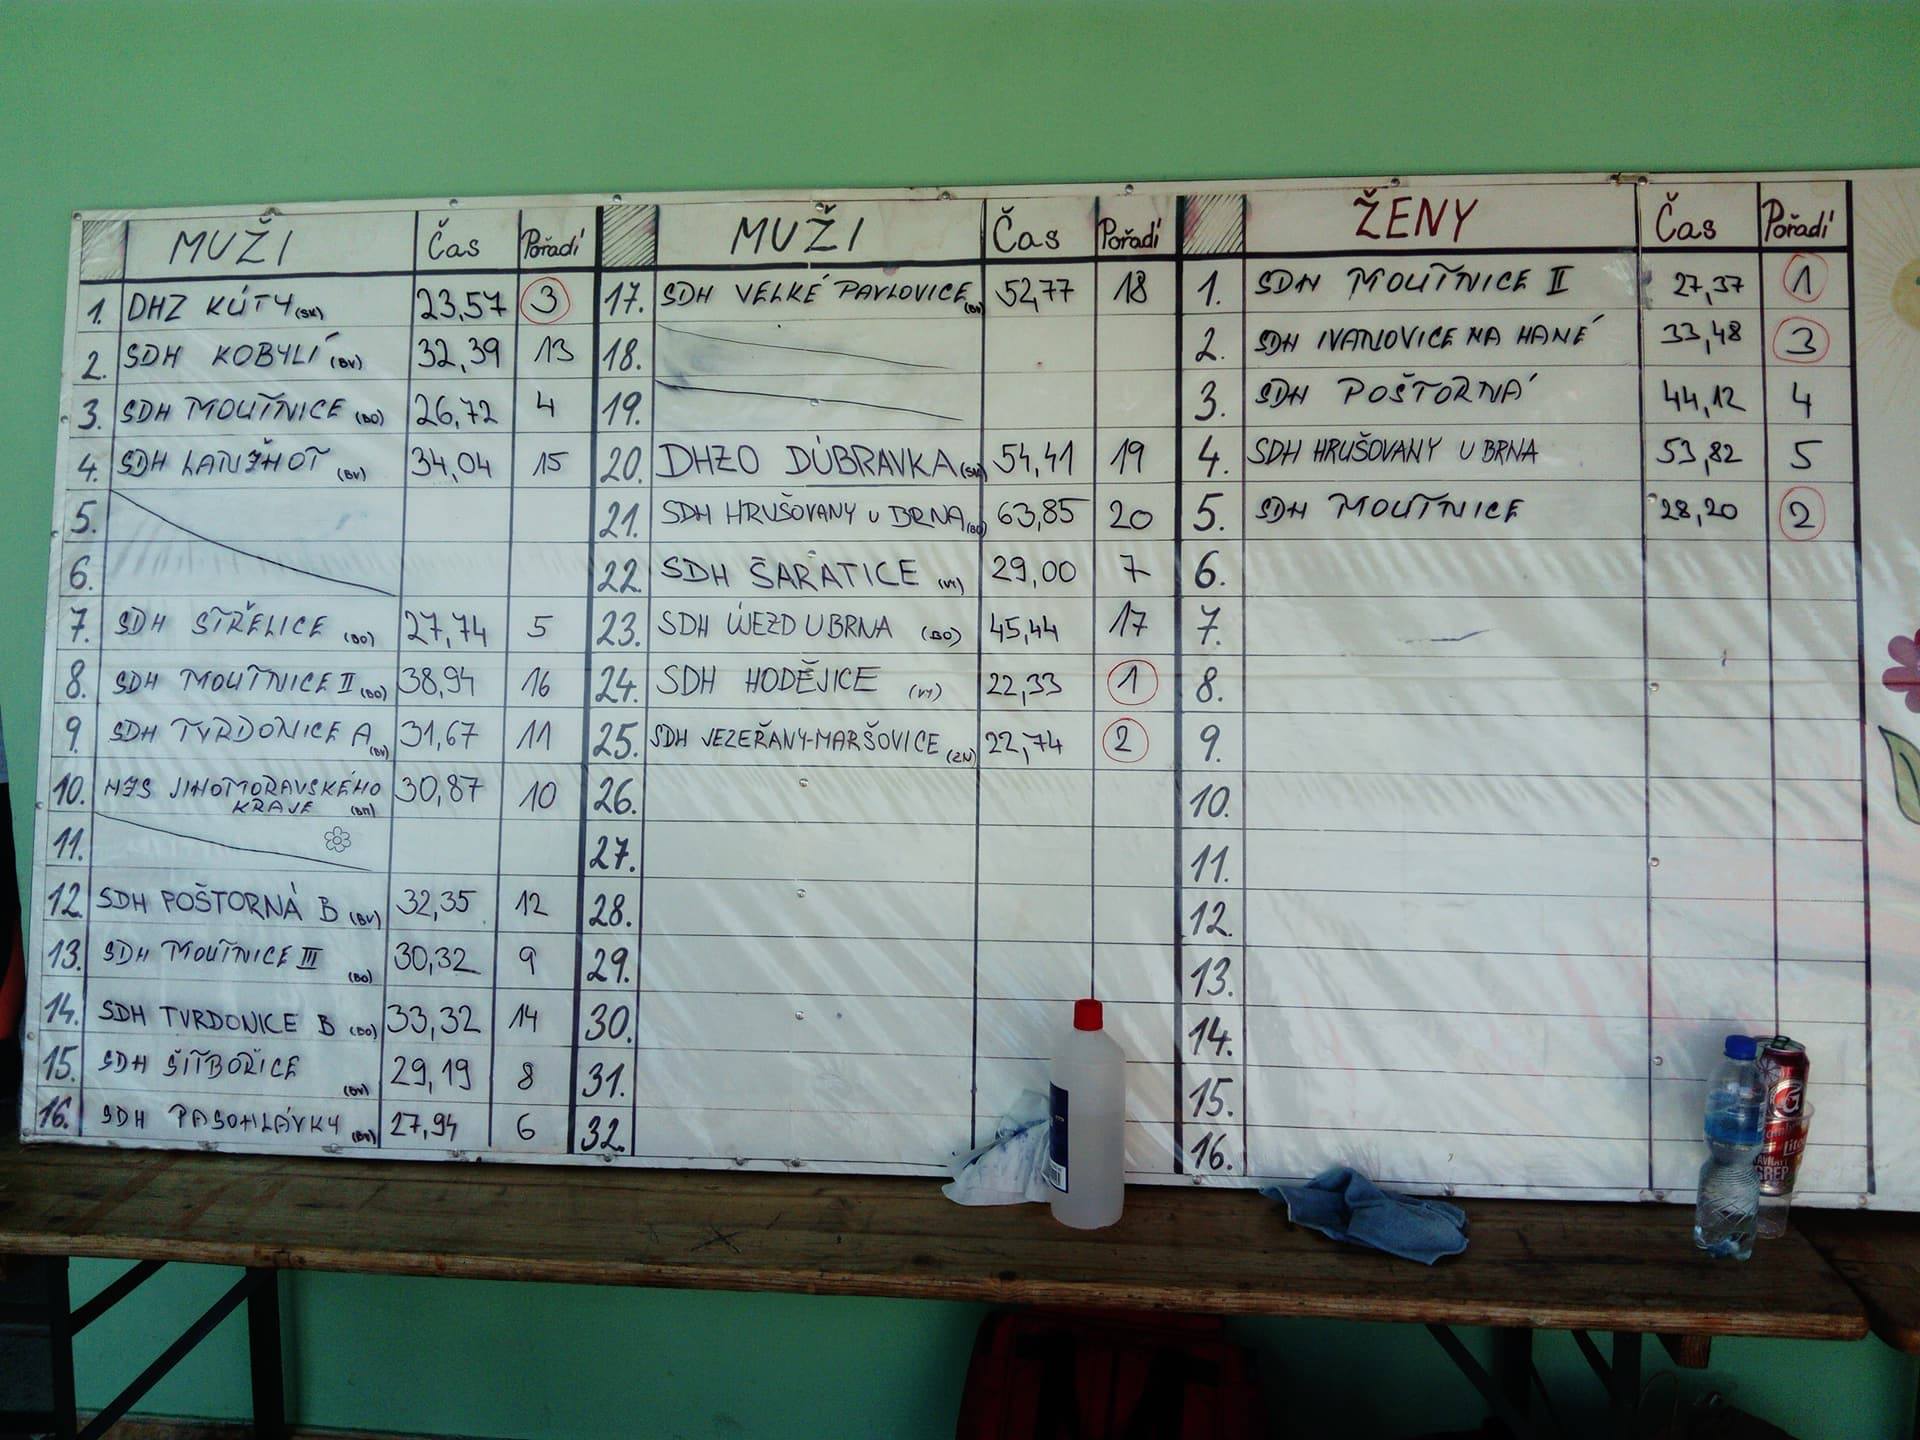 MUŽI Čas Pořadí
1. DHZ KÚTY (SK) 23,57 3
2. SDH KOBYLÍ (BV) 32,39 13
3. SDH MOUTNICE (BO) 26,72 4
4. SDH LANŽHOT (BV) 34,04 15
5.
6.
7. SDH STŘELICE (BO) 27,74 5
8. SDH MOUTNICE II (BO) 38,94 16
9. SDH TVRDONICE A (BV) 31,67 11
10. HZS JIHOMORAVSKÉHO
KRAJE (BM) 30,87 10
11.
12. SDH POŠTORNÁ B (BV) 32,35 12
13. SDH MOUTNICE III (BO) 30,32 9
14. SDH TVRDONICE B (BO) 33,32 14
15. SDH ŠITBOŘICE (BV) 29,19 8
16. SDH PASOHLÁVKY (BV) 27,94 6
MUŽI Čas Pořadí
17. SDH VELKÉ PAVLOVICE (BV) 52,77 18
18.
19.
20. DHZO DÚBRAVKA (SK) 54,41 19
21. SDH HRUŠOVANY U BRNA (BO) 63,85 20
22. SDH ŠARATICE (VY) 29,00 7
23. SDH ÚJEZD U BRNA (BO) 45,44 17
24. SDH HODĚJICE (VY) 22,33 1
25. SDH JEZEŘANY-MARŠOVICE (ZN) 22,74 2
26.
27.
28.
29.
30.
31.
32.
ŽENY Čas Pořadí
1. SDH MOUTNICE II 27,37 1
2. SDH IVANOVICE NA HANÉ 33,48 3
3. SDH POŠTORNÁ 44,12 4
4. SDH HRUŠOVANY U BRNA 53,82 5
5. SDH MOUTNICE 28,20 2
6.
7.
8.
9.
10.
11.
12.
13.
14.
15.
16.
G
GREP